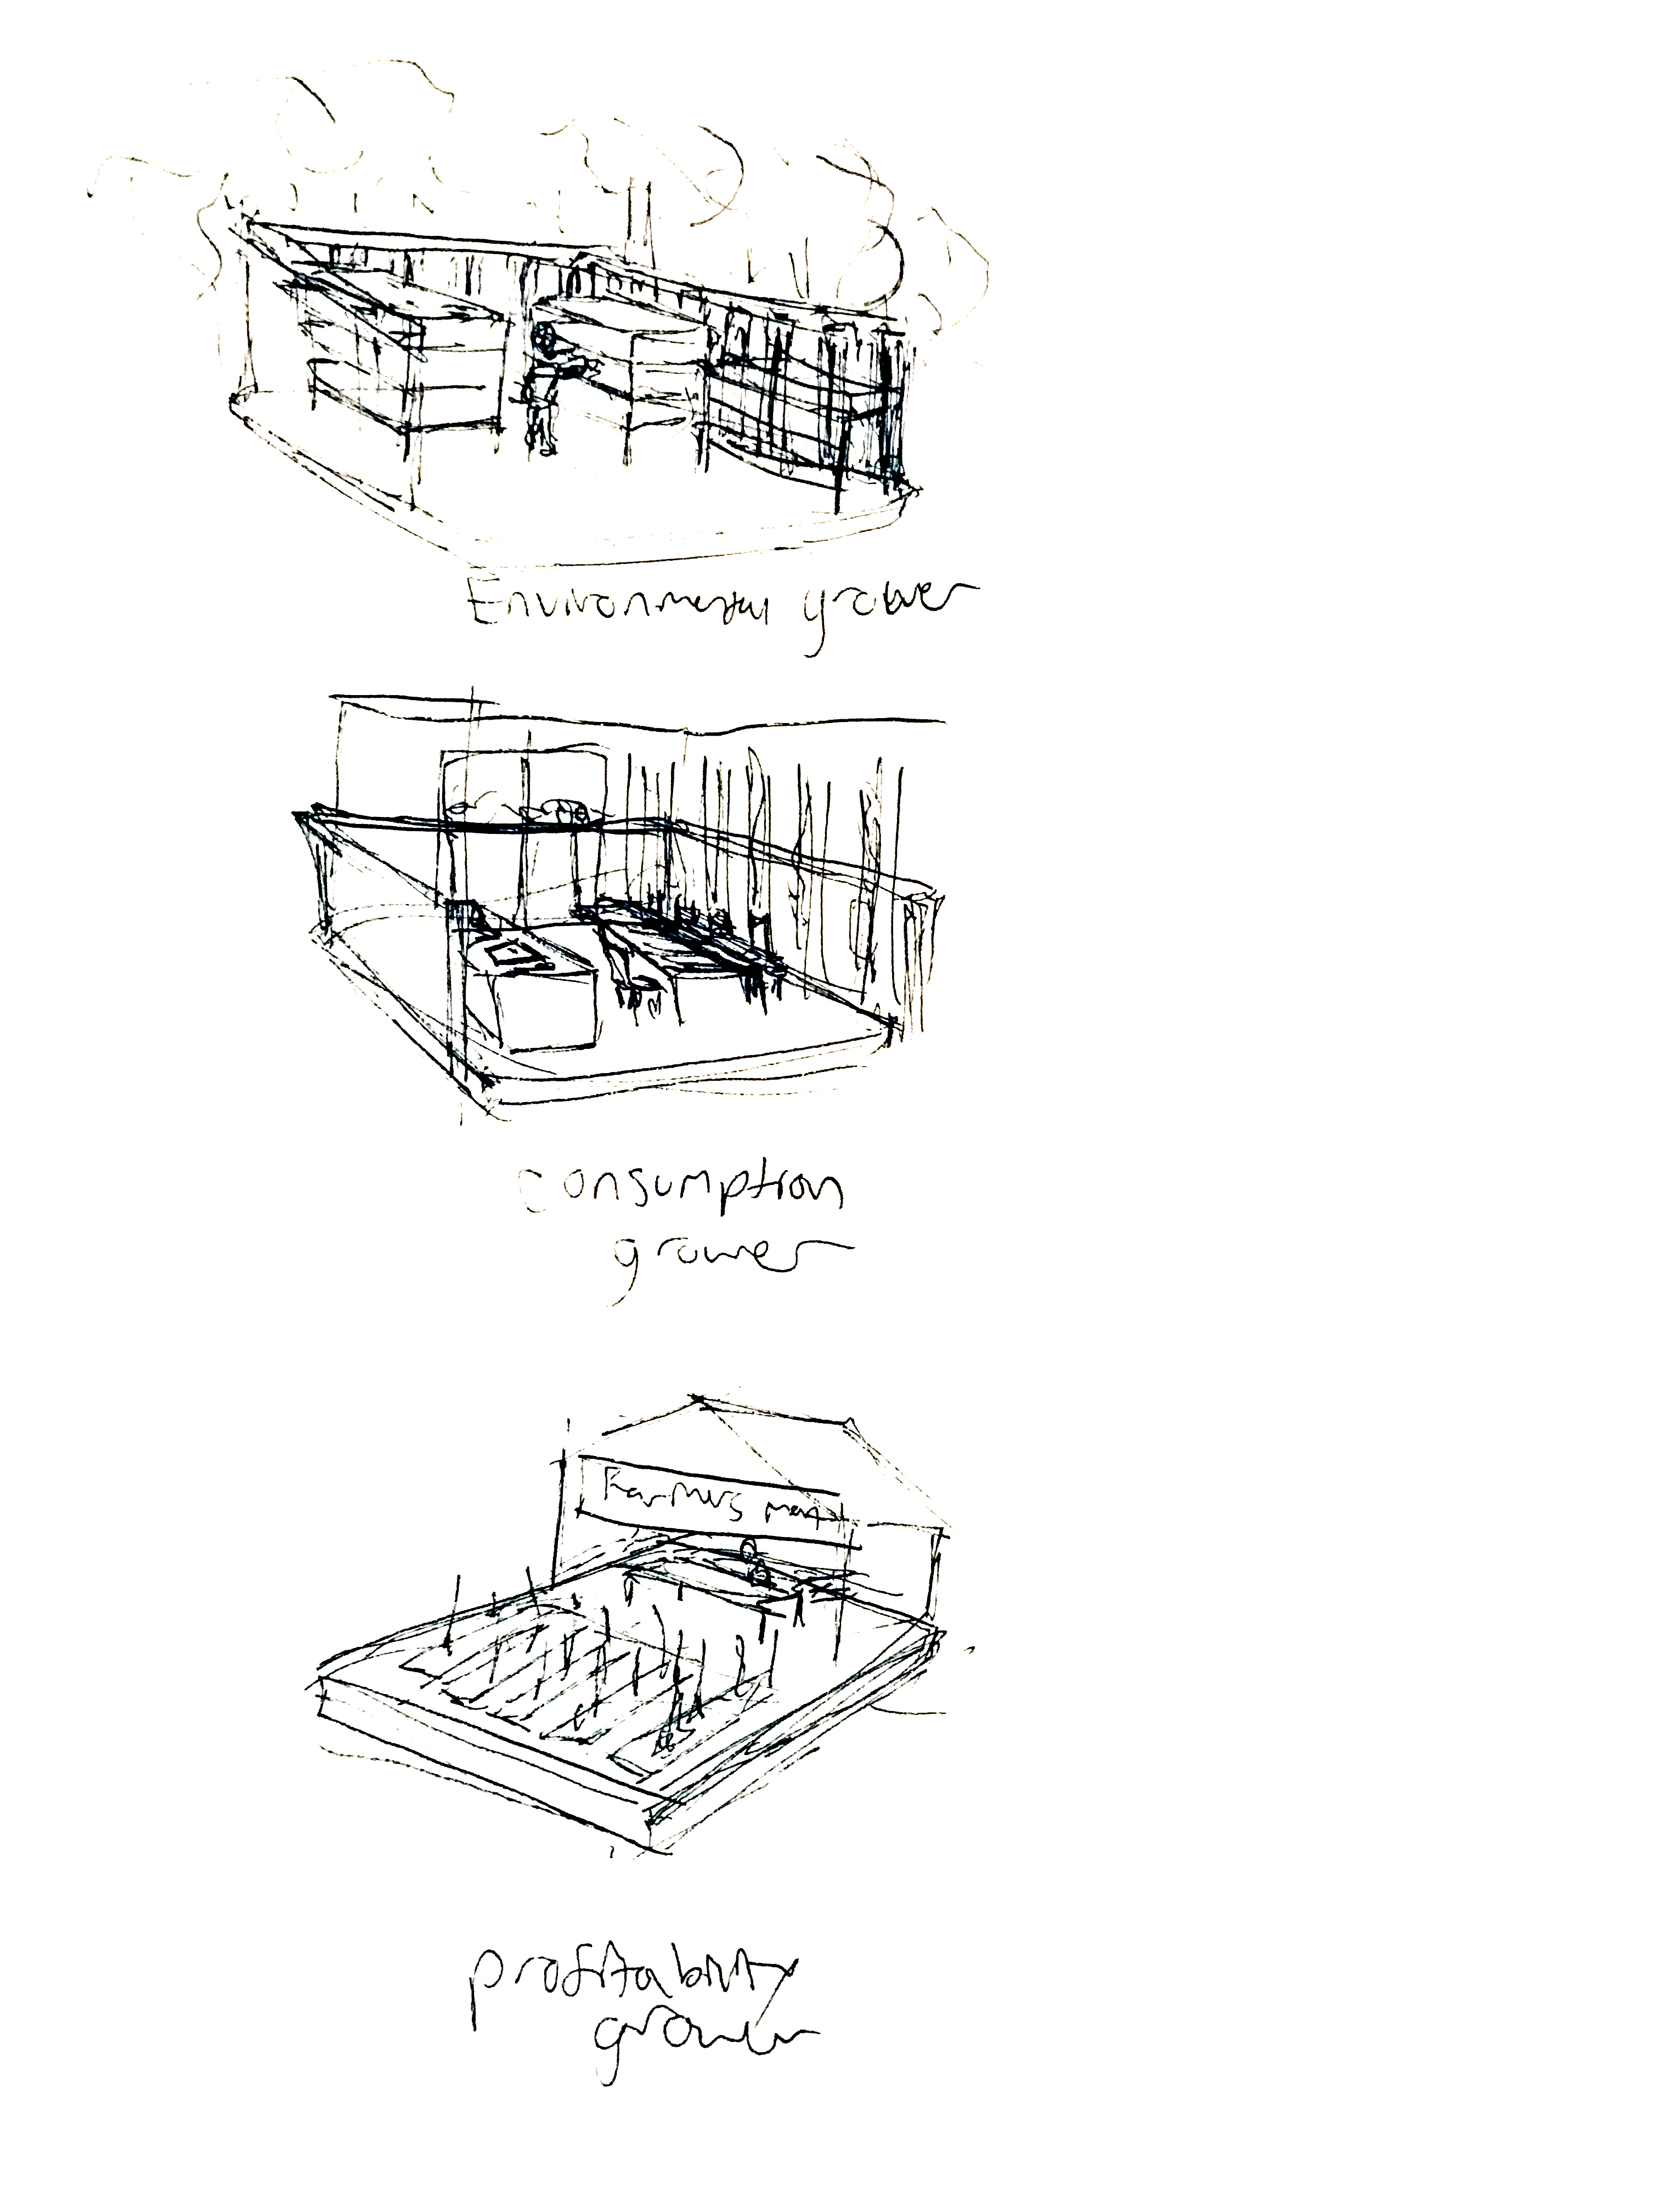 Environmental grower
consumption
grower
Farmers mart
profitability
grower